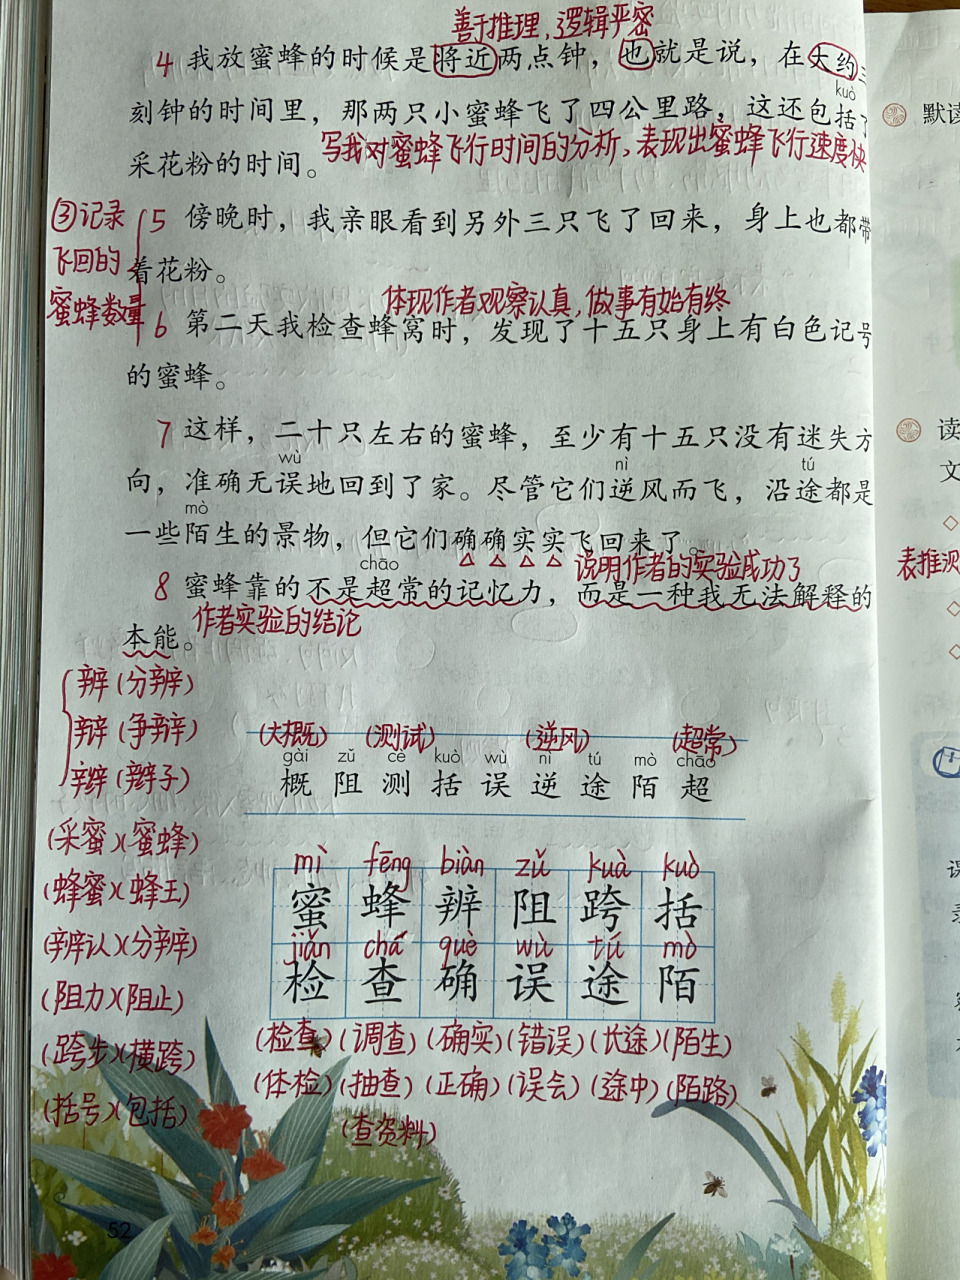 善于推理,逻辑严密
4 我放蜜蜂的时候是将近两点钟，也就是说，在大约三
kuò
刻钟的时间里，那两只小蜜蜂飞了四公里路，这还包括了
采花粉的时间。
写我对蜜蜂飞行时间的分析,表现出蜜蜂飞行速度快
③记录
飞回的
蜜蜂数量
5 傍晚时，我亲眼看到另外三只飞了回来，身上也都带
着花粉。
体现作者观察认真,做事有始有终
6 第二天我检查蜂窝时，发现了十五只身上有白色记号
的蜜蜂。
7 这样，二十只左右的蜜蜂，至少有十五只没有迷失方
wù nì tú
向，准确无误地回到了家。尽管它们逆风而飞，沿途都是
mò
一些陌生的景物，但它们确确实实飞回来了。
说明作者的实验成功了
chāo
8 蜜蜂靠的不是超常的记忆力，而是一种我无法解释的
本能。
作者实验的结论
辨(分辨)
辩(争辩)
辫(辫子)
(采蜜)(蜜蜂)
(蜂蜜)(蜂王)
(辨认)(分辨)
(阻力)(阻止)
(跨步)(横跨)
(括号)(包括)
(大概) (测试) (逆风) (超常)
gài zǔ cè kuò wù nì tú mò chāo
概 阻 测 括 误 逆 途 陌 超
mì fēng biàn zǔ kuà kuò
蜜 蜂 辨 阻 跨 括
jiǎn chá què wù tú mò
检 查 确 误 途 陌
(检查)(调查)(确实)(错误)(长途)(陌生)
(体检)(抽查)(正确)(误会)(途中)(陌路)
(查资料)
52
默读
读
文
表推测